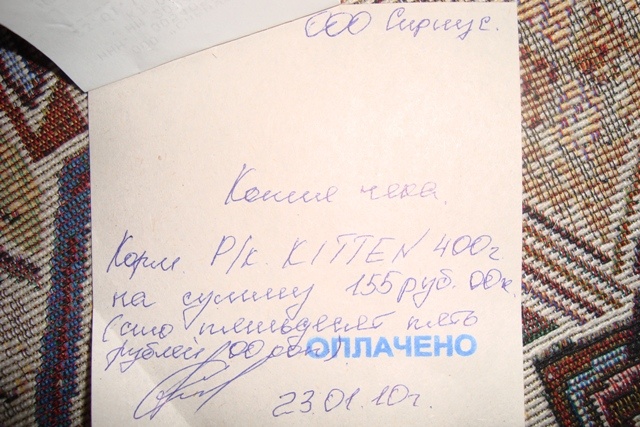 ООО Сириус.
Копия чека.
Корм Р/к. KITTEN 400г
на сумму 155 руб. 00к.
(сто пятьдесят пять
рублей 00 коп).
ОПЛАЧЕНО
23.01.10г.